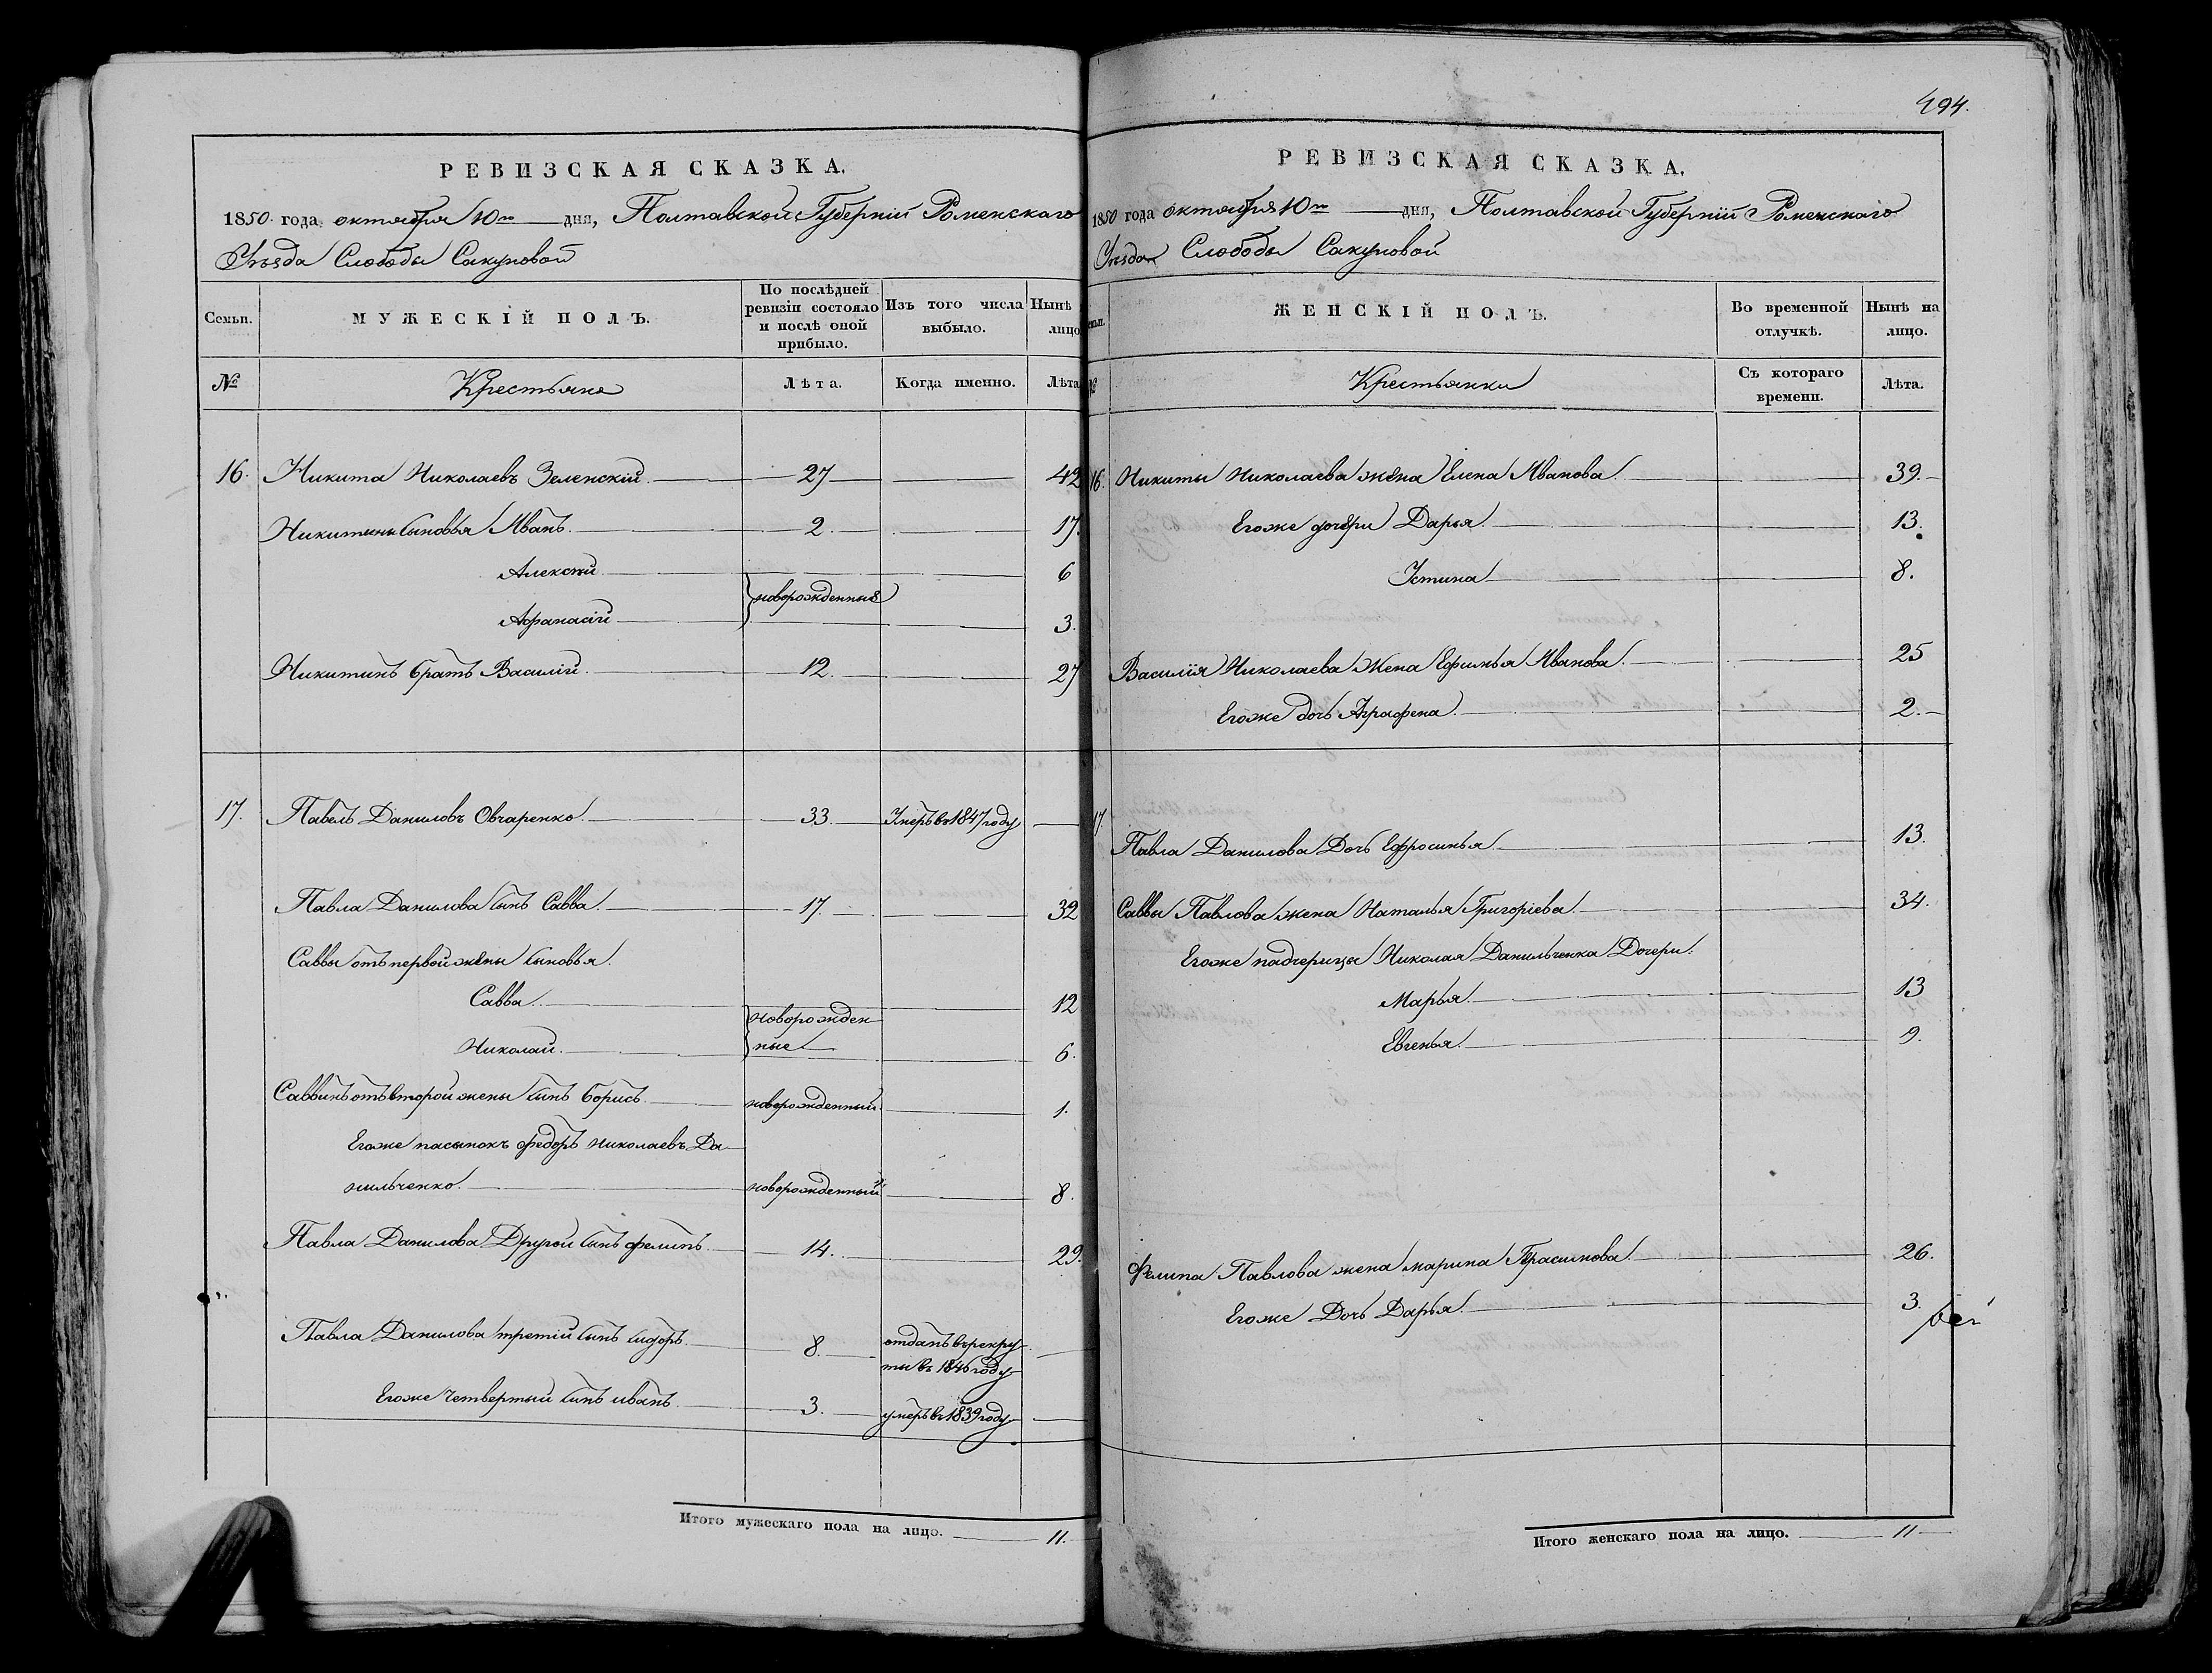 РЕВИЗСКАЯ СКАЗКА.
1850 года октября 10го дня, Полтавской Губерніи Роменскаго
Уѣзда Слободы Сакуновой
Семьи.
МУЖЕСКІЙ ПОЛЪ.
По послѣдней ревизіи состояло и послѣ оной прибыло.
Изъ того числа выбыло.
Нынѣ лицо
№
Крестьяне
Лѣта.
Когда именно.
Лѣта
16. Никита Николаевъ Зеленскій. 27 42
Никитины сыновья Иванъ. 2. 17.
Алексѣй 6
новорожденные
Афанасій 3.
Никитинъ братъ Василій. 12. 27
17. Павелъ Даниловъ Овчаренко. 33. Умеръ въ 1847 году
Павла Данилова сынъ Савва. 17. 32
Саввы отъ первой жены сыновья.
Савва. 12
новорожден
Николай. ные 6.
Саввинъ отъ второй жены сынъ Борисъ. новорожденный. 1.
Егоже пасынокъ Федоръ Николаевъ Да
нильченко. новорожденный 8.
Павла Данилова Другой сынъ Филипъ. 14. 29.
Павла Данилова третій сынъ Сидоръ. 8. отданъ въ рекру
ты въ 1846 году
Егоже четвертый сынъ иванъ. 3. умеръ въ 1839 году
Итого мужескаго пола на лицо. 11.
494.
РЕВИЗСКАЯ СКАЗКА.
1850 года октября 10го дня, Полтавской Губерніи Роменскаго
Уѣзда Слободы Сакуновой
ЖЕНСКІЙ ПОЛЪ.
Во временной отлучкѣ.
Нынѣ на лицо.
№
Крестьянки
Съ котораго времени.
Лѣта.
16. Никиты Николаева жена Елена Иванова. 39.
Егоже дочери Дарья. 13.
Устина 8.
Василія Николаева Жена Ефимья Иванова. 25
Егоже дочь Аграфена. 2.
17.
Павла Данилова Дочь Ефросинья 13.
Саввы Павлова жена Наталья Григоріева. 34.
Егоже падчерицы Николая Данильченка Дочери.
Марья. 13
Евгенья. 9.
Филипа Павлова жена марина Герасимова. 26.
Егоже Дочь Дарья. 3.
Итого женскаго пола на лицо. 11